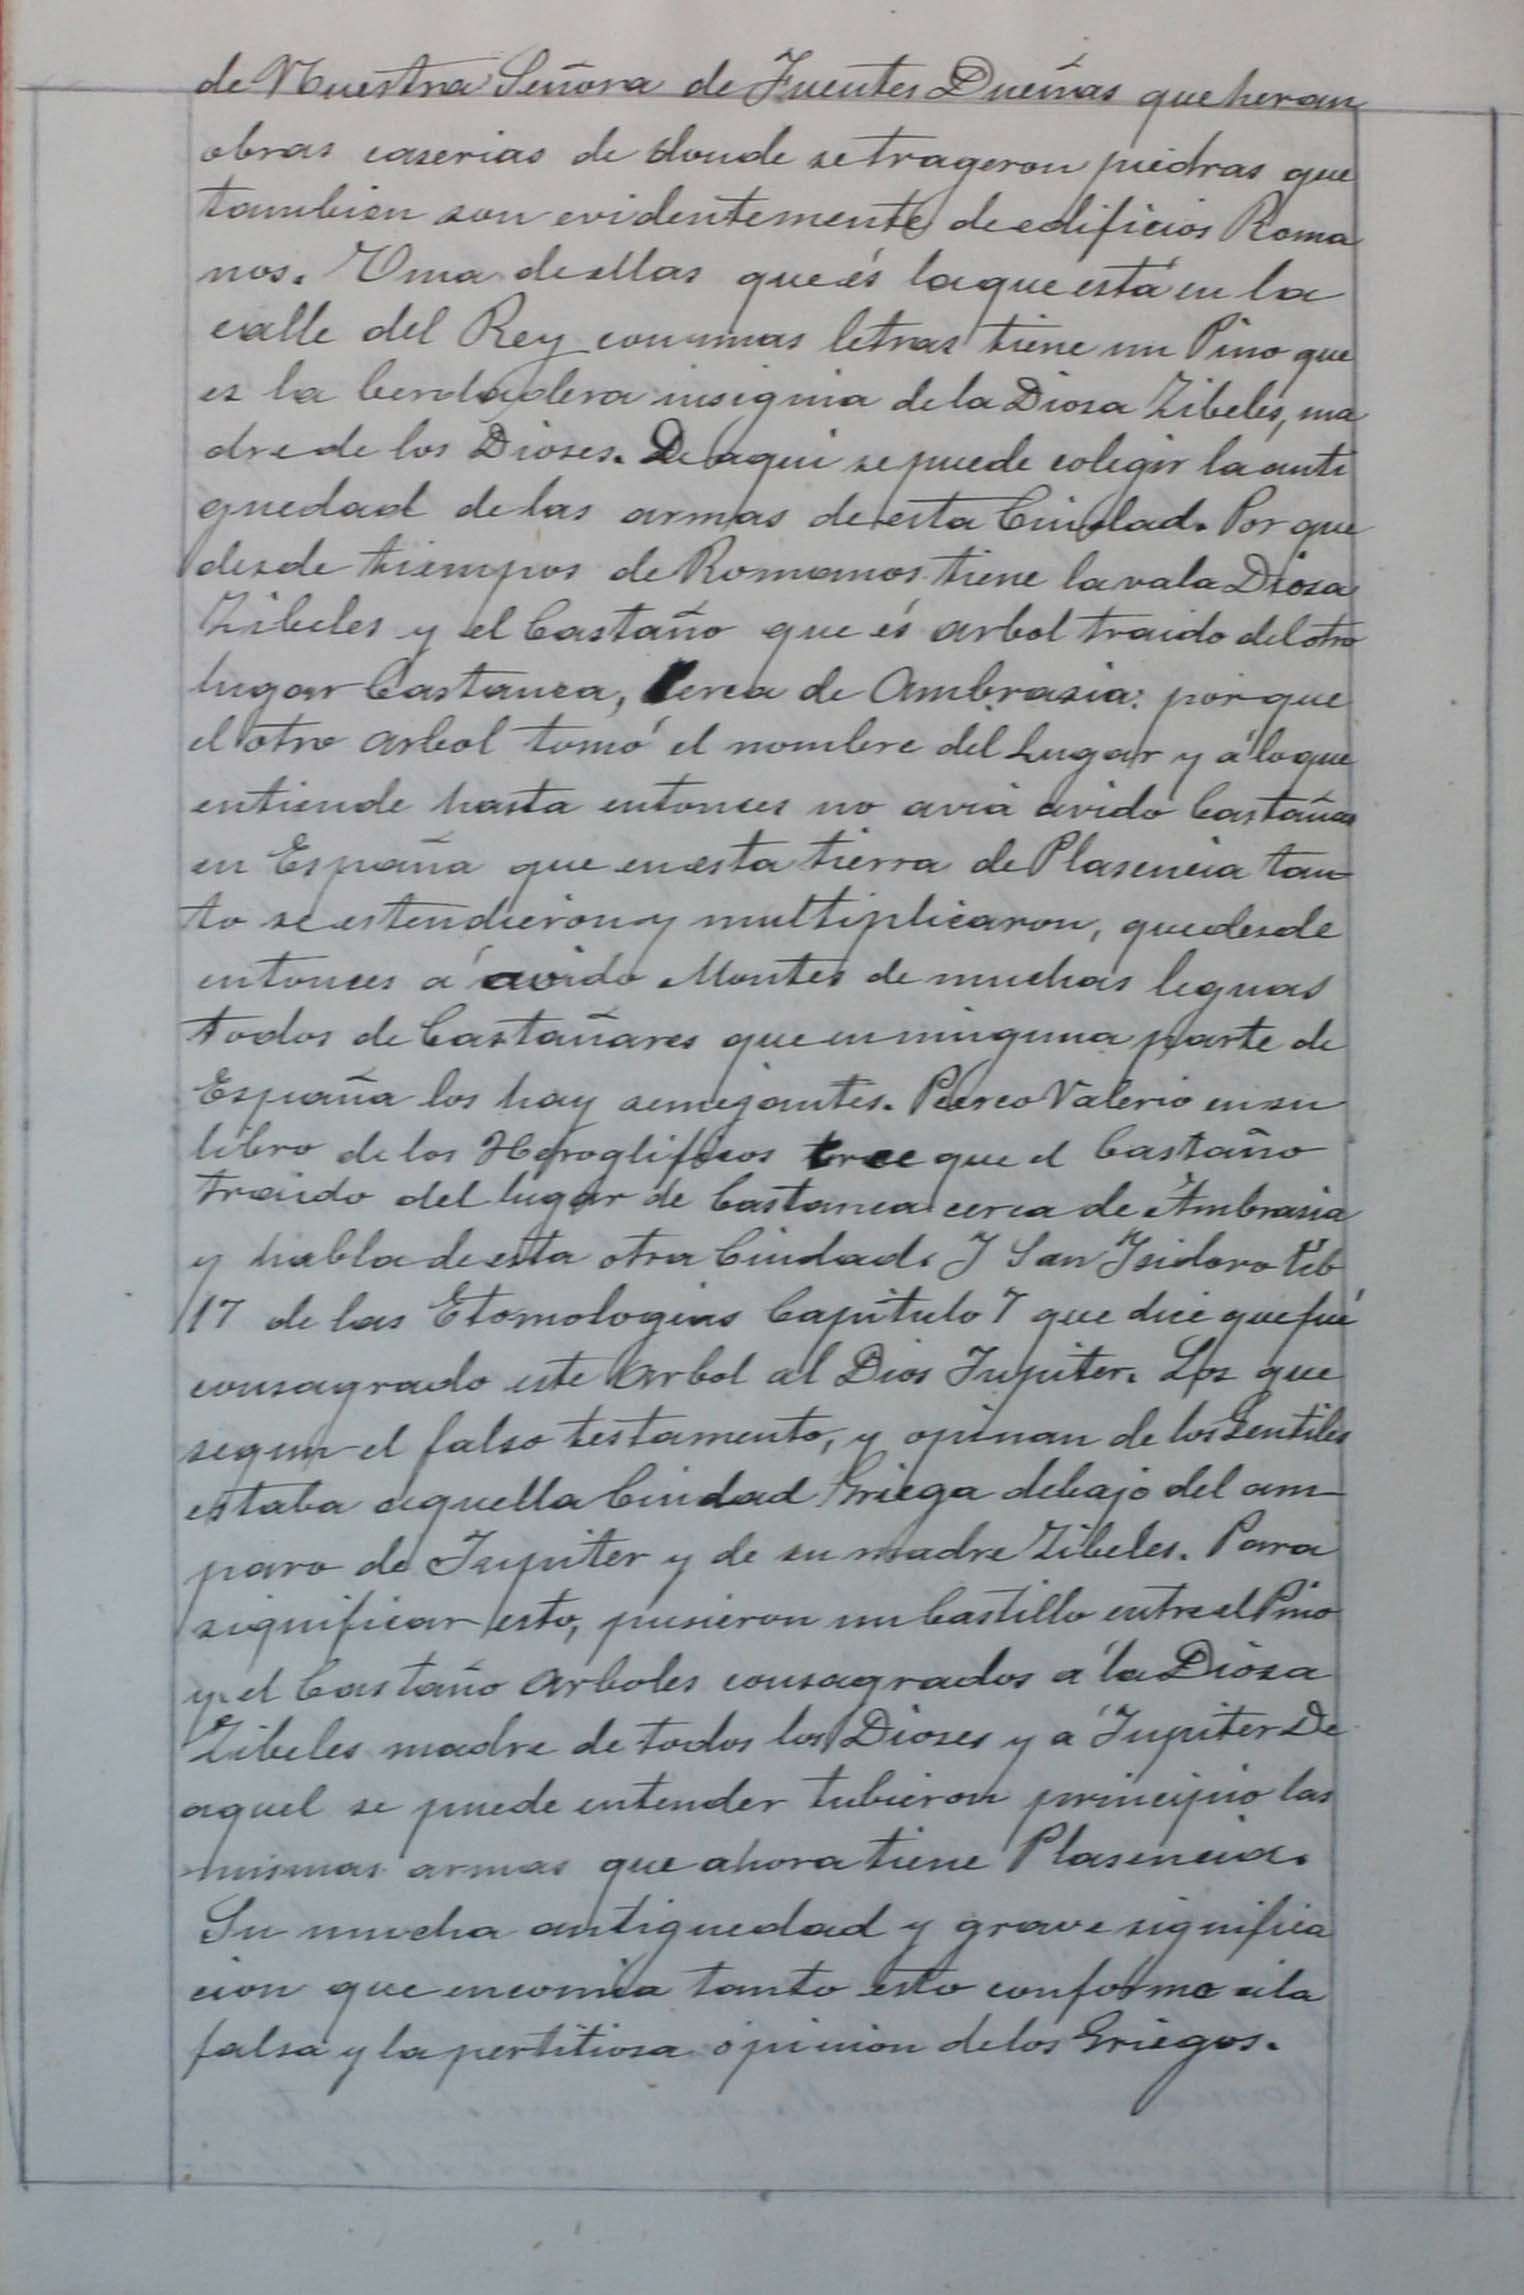 de Nuestra Señora de Fuentes Dueñas que heran
obras caserias de donde se trageron piedras que
tambien son evidentemente de edificios Roma
nos. Una de ellas que és la que está en la
calle del Rey con unas letras tiene un Pino que
es la berdadera insignia de la Diosa Zibeles, ma
dre de los Dioses. De aqui se puede colegir la anti
guedad de las armas de esta Ciudad. Por que
desde tiempos de Romanos tiene la vala Diosa
Zibeles y el Castaño que és arbol traido del otro
lugar Castanea, cerca de Ambrasia: porque
el otro arbol tomó el nombre del Lugar y á lo que
entiende hasta entonces no avia avido Castañas
en España que en esta tierra de Plasencia tan
to se estendieron y multiplicaron, que desde
entonces á avido Montes de muchas leguas
todos de Castañares que en ninguna parte de
España los hay semejantes. Pierco Valerio en su
libro de los Heroglificos cree que el Castaño
traido del lugar de Castanea cerca de Ambrasia
y habla de esta otra Ciudad. Y San Ysidoro Lib
17 de las Etomologias Capitulo 7 que dice que fué
consagrado este Arbol al Dios Jupiter. Los que
segun el falso testamento, y opinan de los Gentiles
estaba aquella Ciudad Griega debajo del am-
paro de Jupiter y de su madre Zibeles. Para
significar esto, pusieron un Castillo entre el Pino
y el Castaño Arboles consagrados á la Diosa
Zibeles madre de todos los Dioses y á Jupiter De
aquel se puede entender tubieron principio las
mismas armas que ahora tiene Plasencia.
Su mucha antiguedad y grave significa
cion que encomia tanto esto conforme a la
falsa y la pertitiosa opinion de los Griegos.